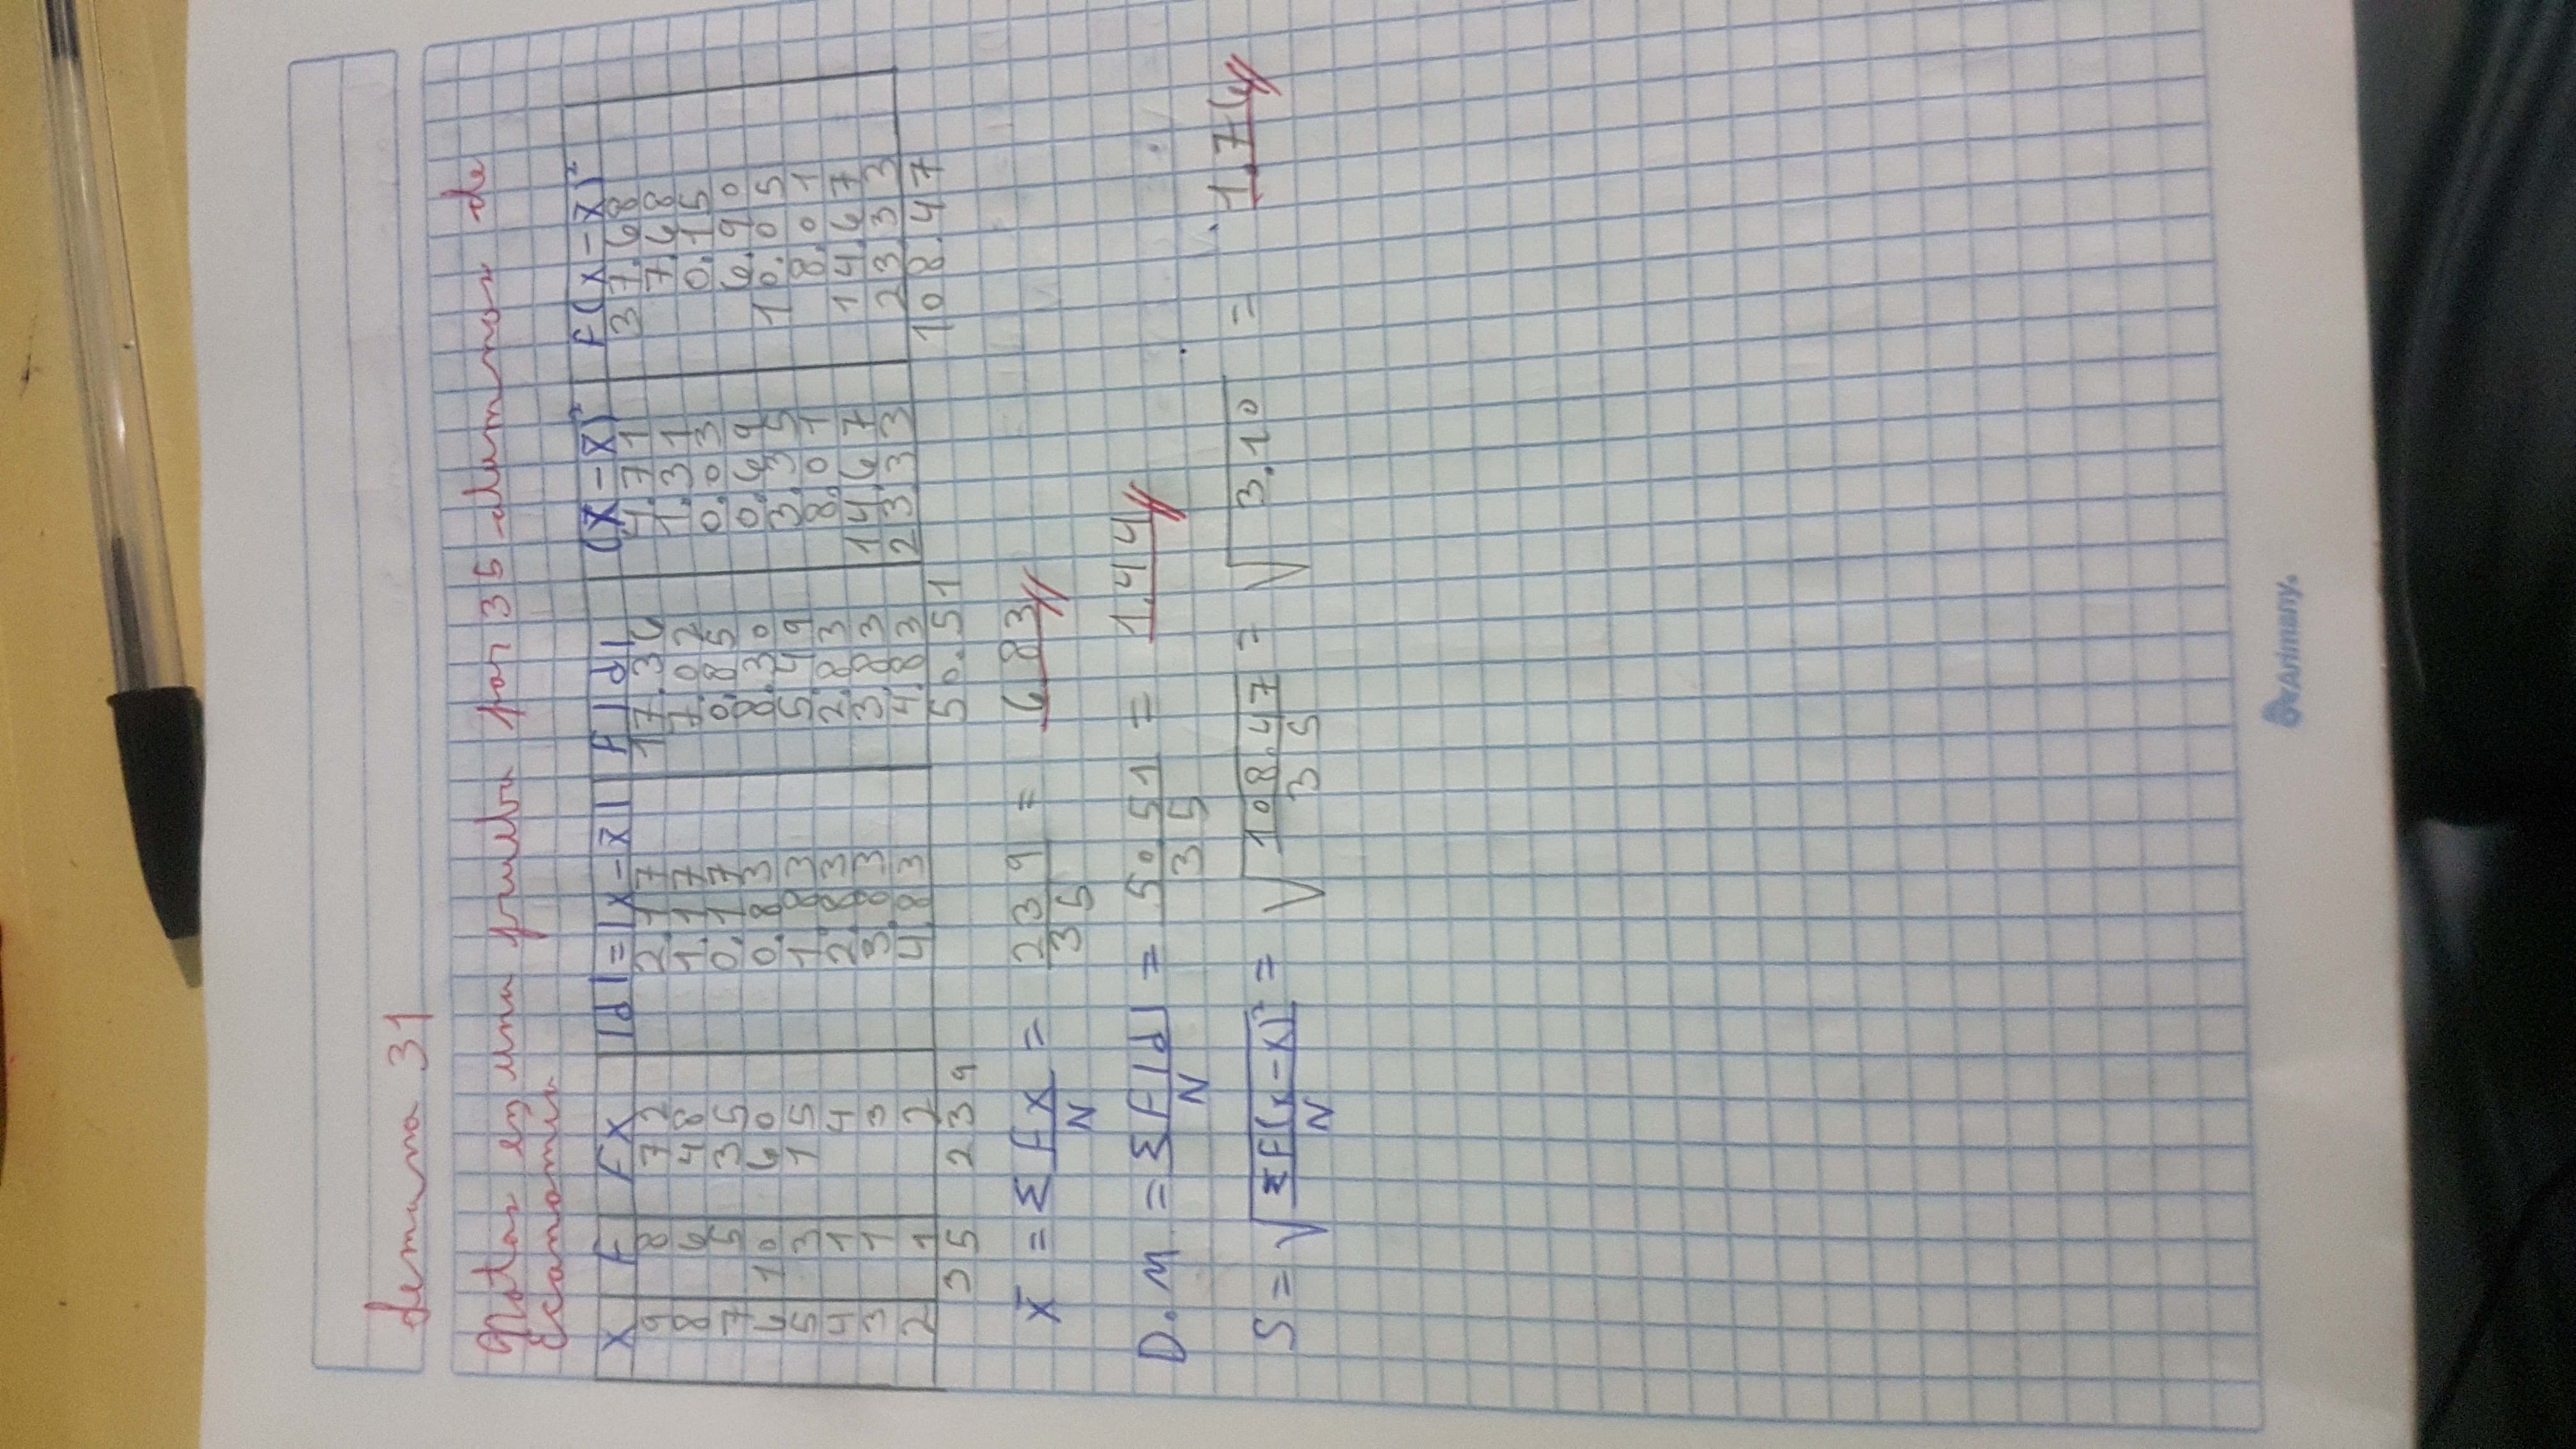 Semana 31
Notas en una prueba por 35 alumnos de
Economía
X F FX |d|=|X-X̄| F|d| (X-X̄)² F(X-X̄)²
9 8 72 2.17 17.36 4.71 37.68
8 6 48 1.17 7.02 1.31 7.68
7 5 35 0.17 0.85 0.03 0.15
6 10 60 0.83 8.30 0.69 6.90
5 3 15 1.83 5.49 3.35 10.05
4 1 4 2.83 2.83 8.01 8.01
3 1 3 3.83 3.83 14.67 14.67
2 1 2 4.83 4.83 23.33 23.33
35 239 50.51 108.47
X̄ = ΣFX/N = 239/35 = 6.83
D.M = ΣF|d|/N = 50.51/35 = 1.44
S = √ΣF(x-X)²/N = √108.47/35 = √3.10 = 1.76
Artimany.